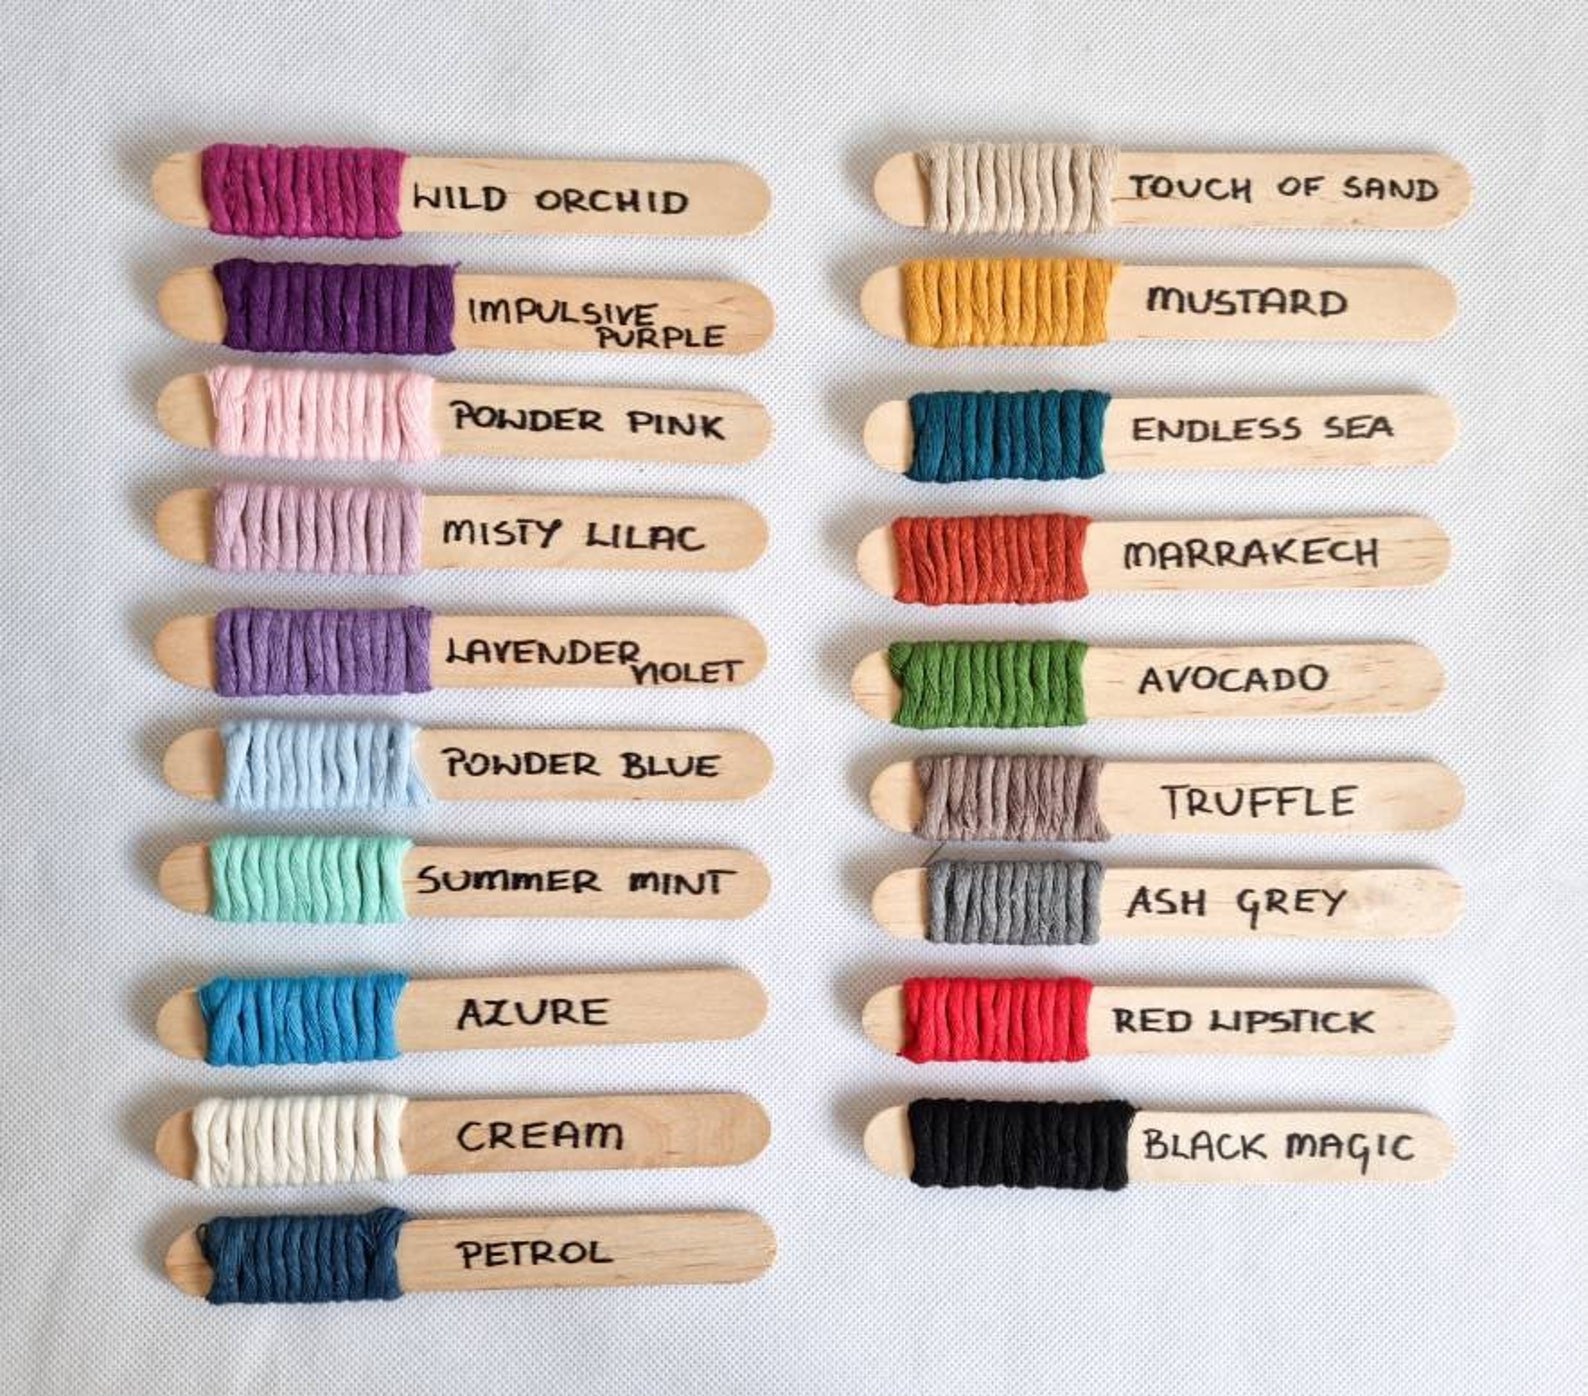 WILD ORCHID
IMPULSIVE
PURPLE
POWDER PINK
MISTY LILAC
LAVENDER
VIOLET
POWDER BLUE
SUMMER MINT
AZURE
CREAM
PETROL
TOUCH OF SAND
MUSTARD
ENDLESS SEA
MARRAKECH
AVOCADO
TRUFFLE
ASH GREY
RED LIPSTICK
BLACK MAGIC